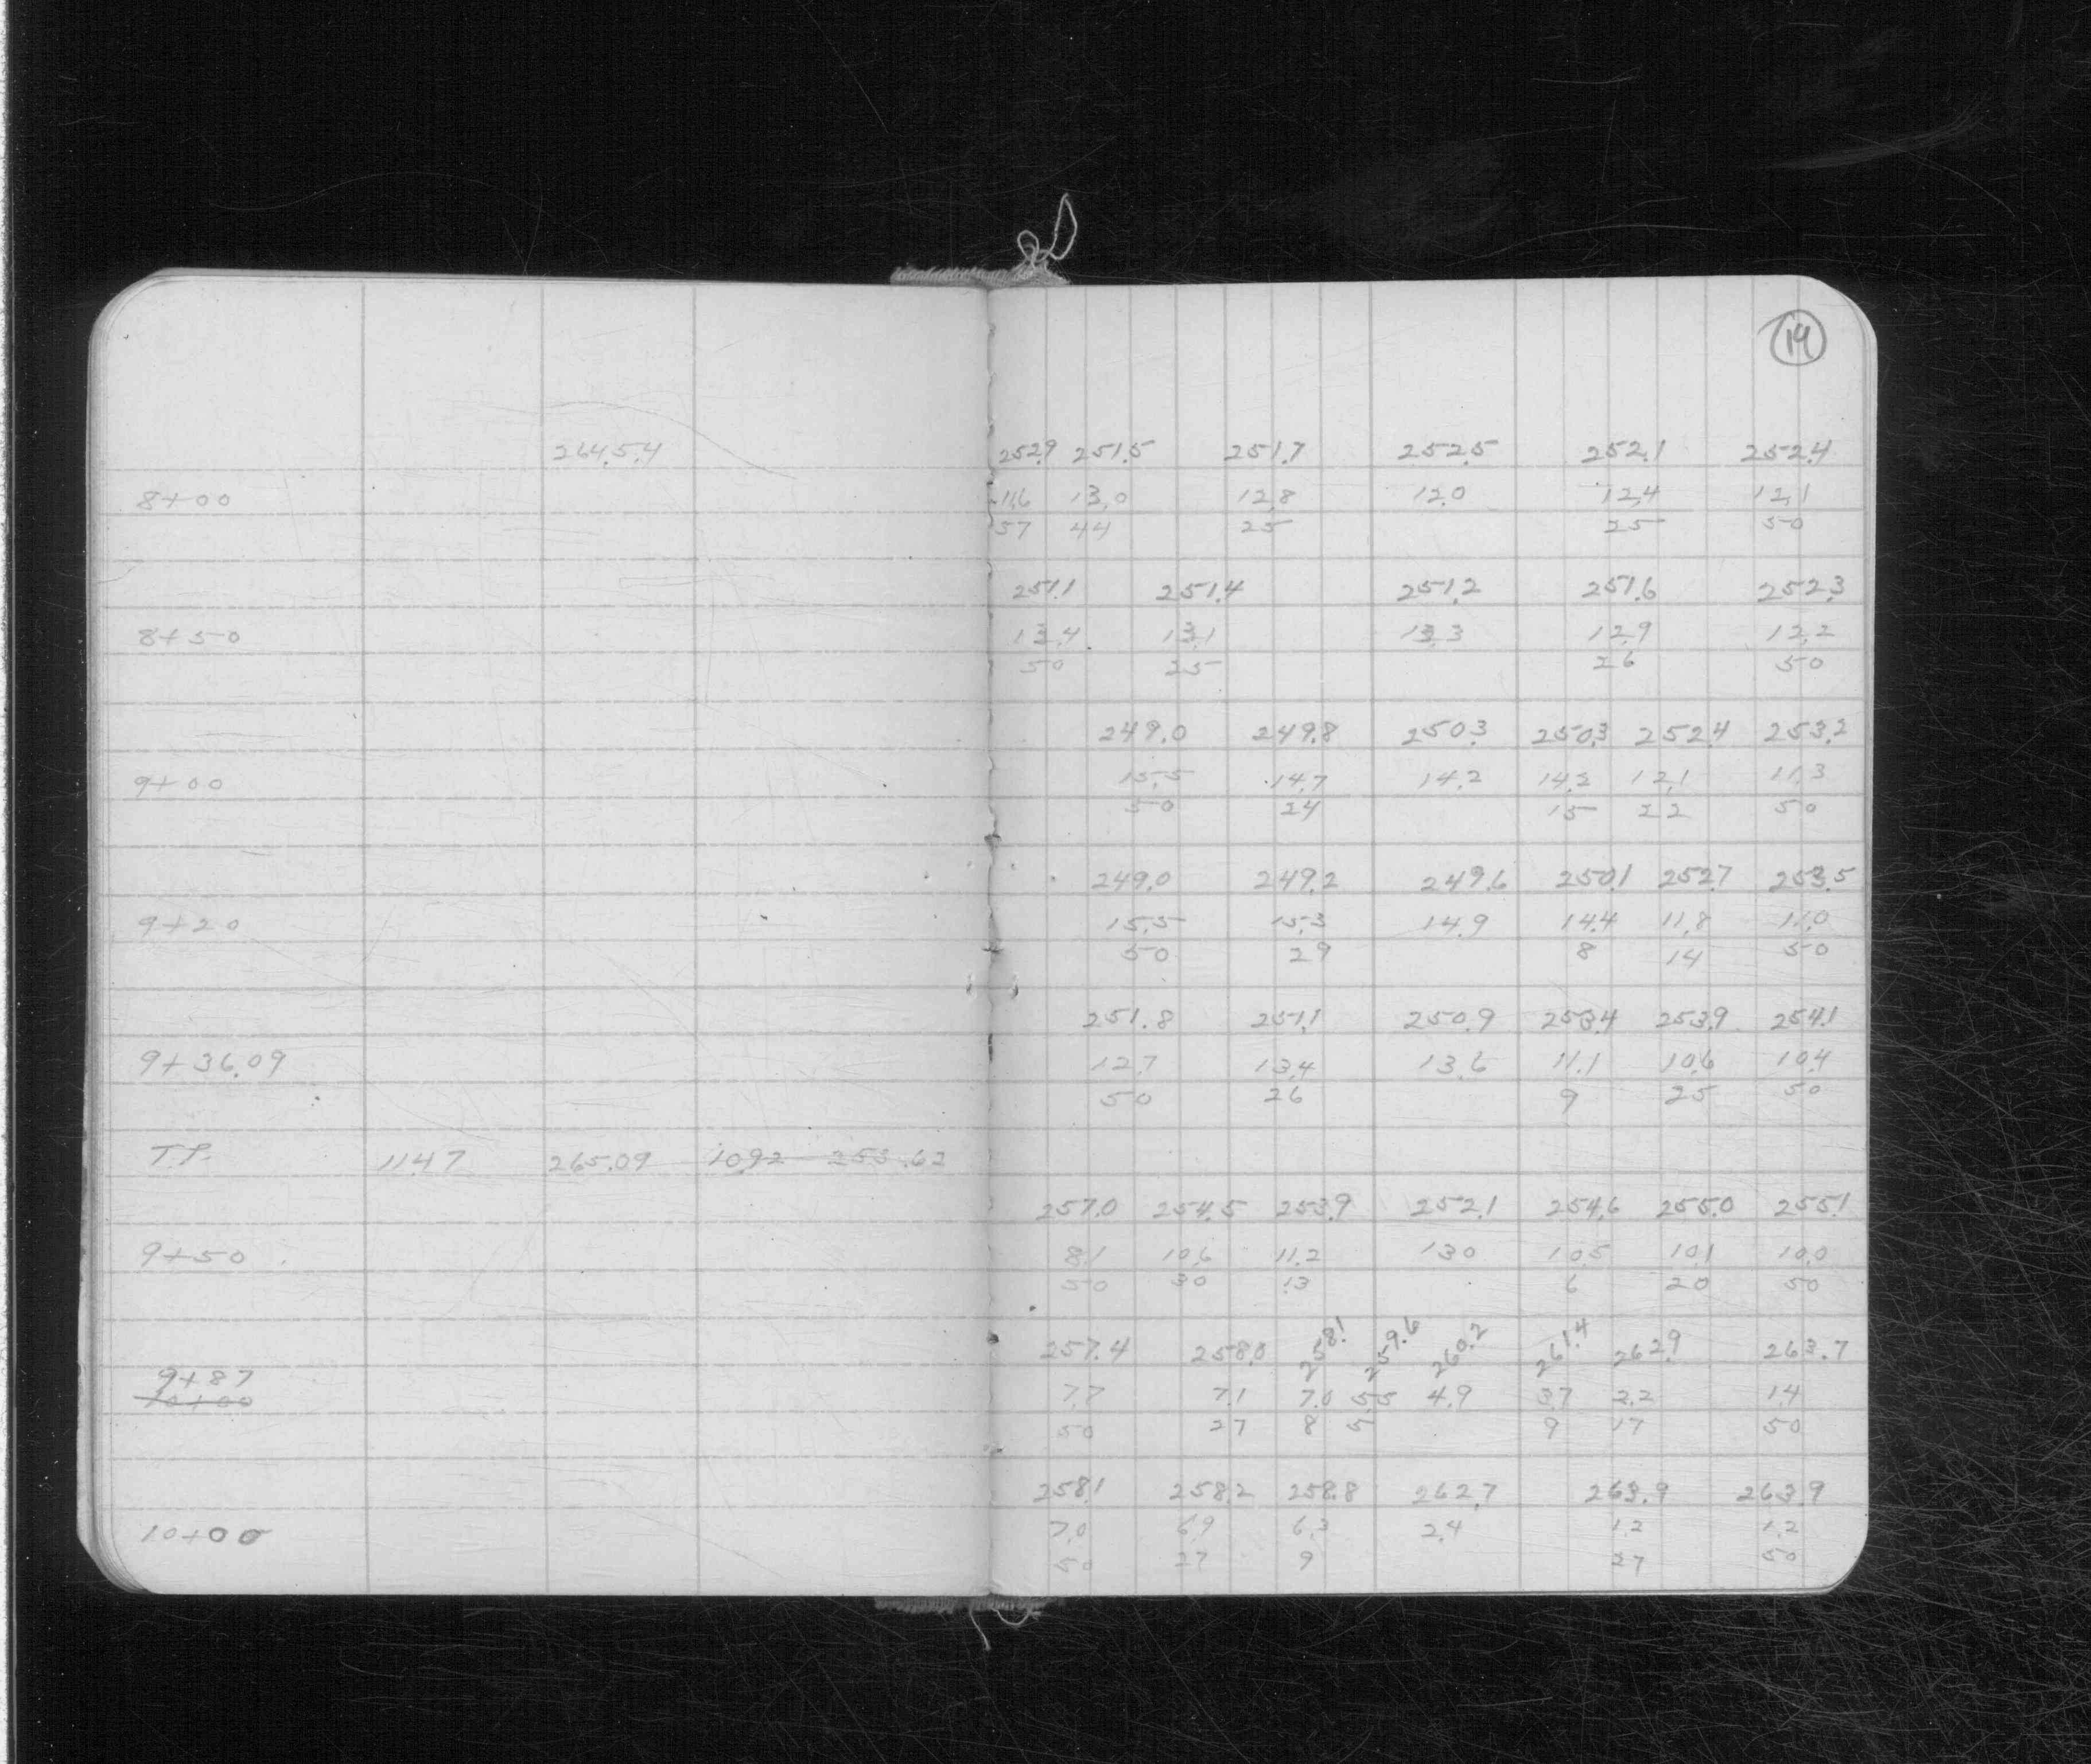 19
264.54 252.9 251.5 251.7 252.5 252.1 252.4
8+00 11.6 13.0 12.8 12.0 12.4 12.1
57 44 25 25 50
251.1 251.4 251.2 251.6 252.3
8+50 13.4 13.1 13.3 12.9 12.2
50 25 26 50
249.0 249.8 250.3 250.3 252.4 253.2
9+00 15.5 14.7 14.2 14.2 12.1 11.3
50 24 15 22 50
249.0 249.2 249.6 250.1 252.7 253.5
9+20 15.5 15.3 14.9 14.4 11.8 11.0
50 29 8 14 50
251.8 251.1 250.9 253.4 253.9 254.1
9+36.09 12.7 13.4 13.6 11.1 10.6 10.4
50 26 9 25 50
T.P. 11.47 265.09 10.92 253.62
257.0 254.5 253.9 252.1 254.6 255.0 255.1
9+50 8.1 10.6 11.2 13.0 10.5 10.1 10.0
50 30 13 6 20 50
257.4 258.0 258.1 259.6 260.2 261.4 262.9 263.7
9+87
10+00 7.7 7.1 7.0 5.5 4.9 3.7 2.2 1.4
50 27 8 5 9 17 50
258.1 258.2 258.8 262.7 263.9 263.9
10+00 7.0 6.9 6.3 2.4 1.2 1.2
50 27 9 27 50